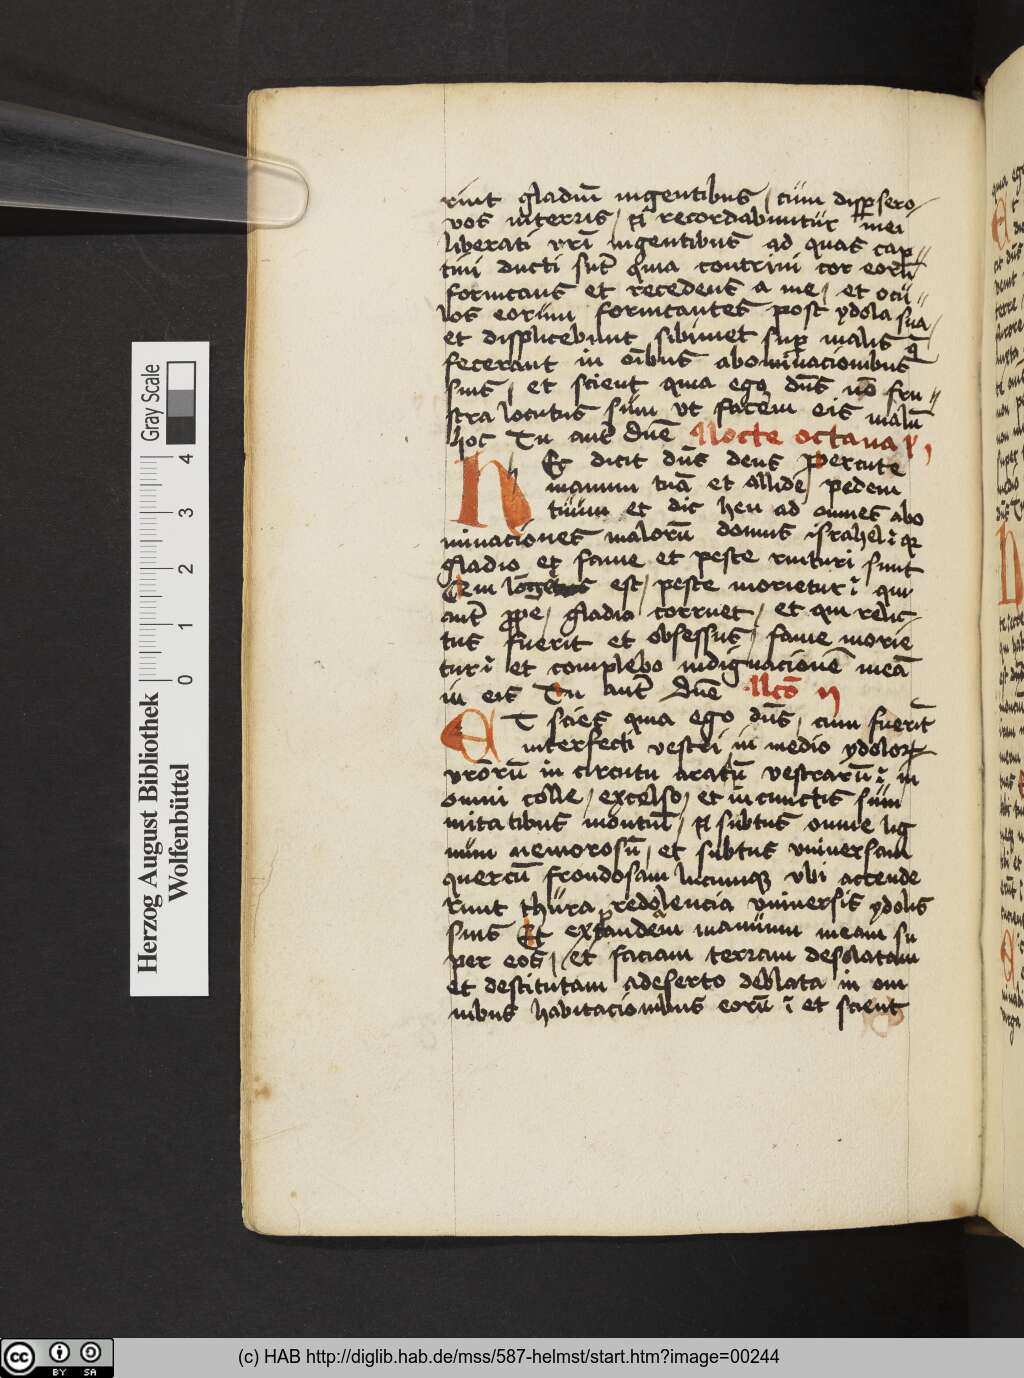 rint gladiū ingentibus / cūm dispsero
vos interris / et recordabuntur mei
liberati vr̄i ingentibus ad quas cap
tiui ducti sūt quia contriui cor eorū
fornicans et recedens a me / et ocu
los eorum fornicantes post ydola sua /
et displicebunt sibimet sup malis q̄
fecerant in oībus abominacionibus
suis / et scient quia ego dūs nō fru
stra locutus sūm vt facēm eis malū
hoc Tu autē dnē Nocte octaua
Hec dicit dūs deus percute
manum tuā et allide pedem
tuum et dic heu ad omnes abo
minaciones malorū domus israhel qz
gladio et fame et peste ruituri sunt
Qem lōge est / peste morietur qui
autē ppe / gladio corruet / et qui relic
tus fuerit et obsessus / fame morie
tur et complebo indignacionē meā
in eis Tu autē dnē llcō ij
ET scies quia ego dūs / cum fuerīt
interfecti vestri in medio ydolorz
vrōrū in circutu aratū vestrarū in
omni colle / excelso / et in cunctis sum
mitatibus montiū / et subtus omne lig
num nemorosū / et subtus vniuersam
quercū frondosam lucumqz vbi accende
runt thura redolencia vniuersis ydolis
suis Et extandem manuum meam su
per eos / et faciam terram desolatam
et destitutam adeserto deblata in om
nibus habitacionibus eorū et scient
Herzog August Bibliothek
Wolfenbüttel
Gray Scale
0 1 2 3 4
(c) HAB http://diglib.hab.de/mss/587-helmst/start.htm?image=00244
cc BY SA